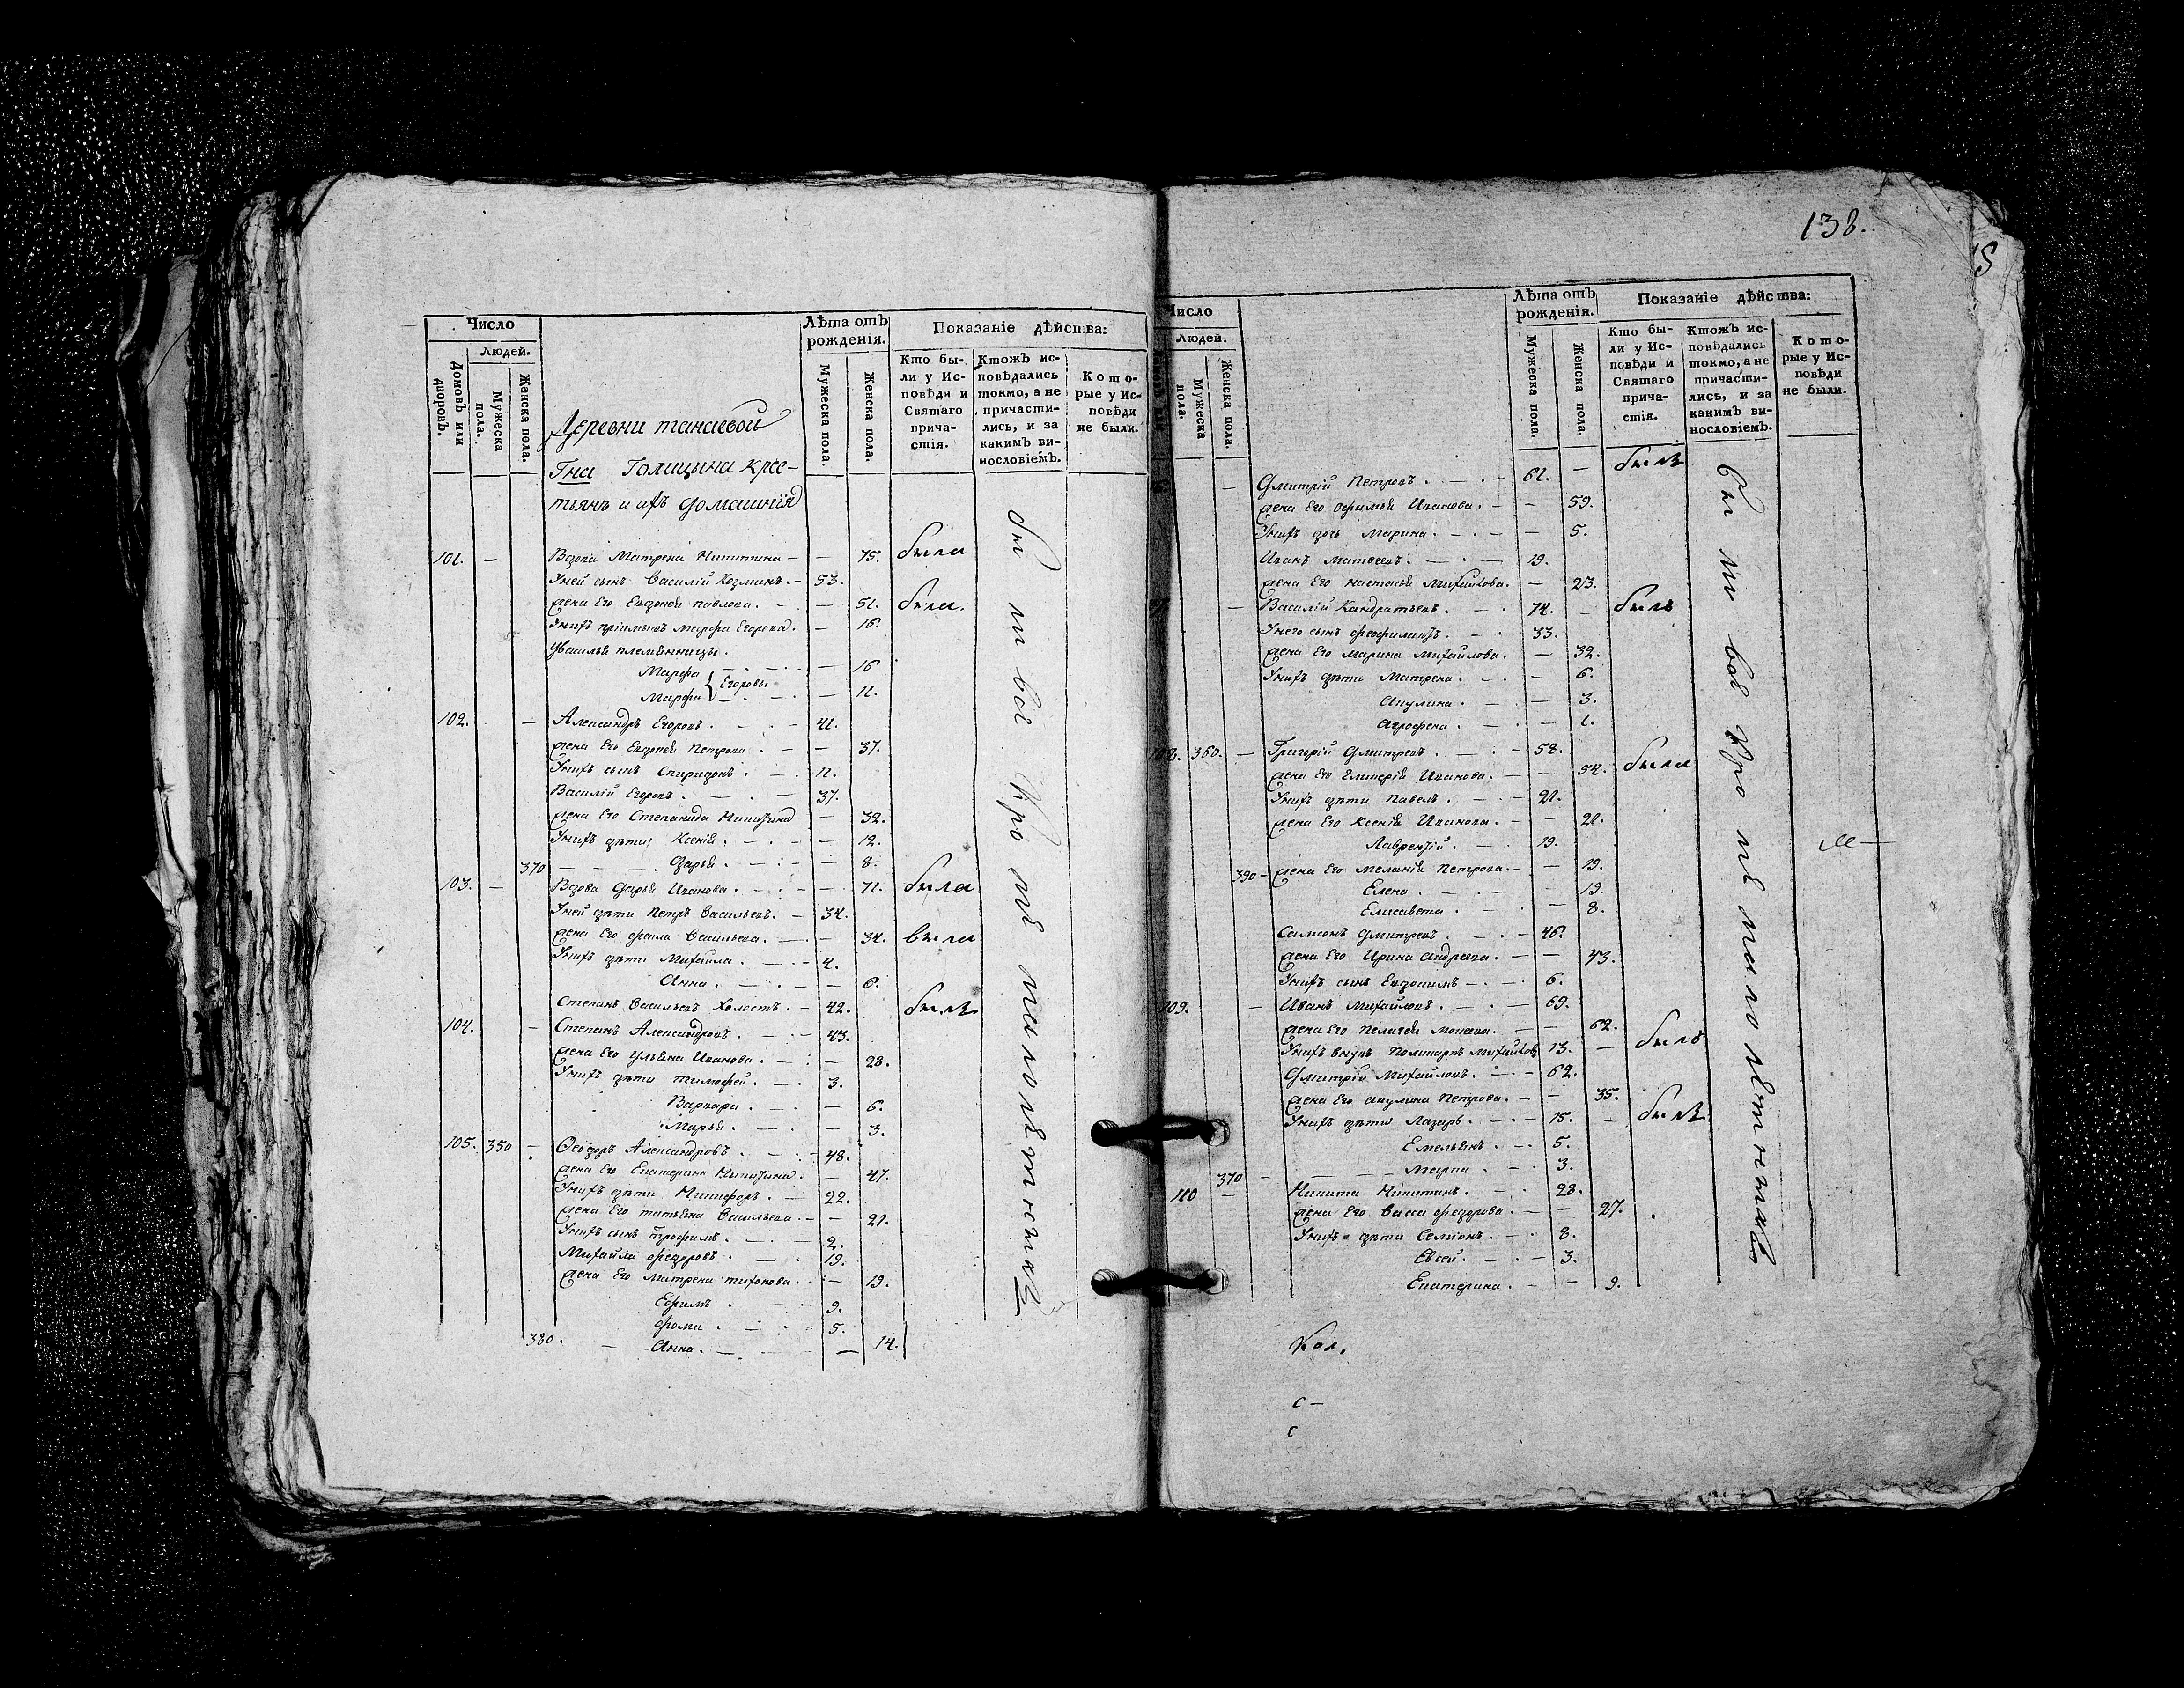 Число
Людей.
Домовъ или дворовъ.
Мужеска пола.
Женска пола.
Лѣта отъ рожденія.
Мужеска пола.
Женска пола.
Показаніе дѣйства:
Кто бы-
ли у Ис-
повѣди и
Святаго
прича-
стія.
Ктожъ ис-
повѣдались
токмо, а не
причасти-
лись, и за
какимъ ви-
нословіемъ.
Кото-
рые у Ис-
повѣди
не были.
Деревни танаевой
Гна Голицына крес-
тьянъ и ихъ домашнія
101. — Вдова Матрена Никитина — — 75. была
Уней сынъ Василій Козминъ. — 53.
жена Его Евдокея павлова. — — 51. была.
Унихъ пріимышъ марфа Егорова. — 16.
Увасилья племянницы.
Марфа — 16
Марфа { Егоровы — — 11.
102. — Александръ Егоровъ. — — 41.
жена Его Евдокея Петрова. — — 37.
Унихъ сынъ Спиридонъ. — 11.
Василій Егоровъ. — — 37.
жена Его Степанида Никитина — 32.
Унихъ дѣти: Ксенія. — — 12.
370 — Дарья. — — 8.
103. — Вдова Дарья Иванова. — — 71. была
Уней дѣти Петръ Васильевъ. — 34.
жена Его фекла Васильева. — — 34. была
Унихъ дѣти Михайла. — — 4.
Анна. — — 6.
Степанъ Васильевъ Холостъ. — 42. былъ
104. — Степанъ Александровъ. — — 43.
жена Его Ульяна Иванова. — — 28.
Унихъ дѣти тимофей. — 3.
Варвара. — — 6.
Марья. — — 3.
105. 350 — Ѳеодоръ Александровъ. — — 48.
жена Его Екатерина Никитина. — 47.
Унихъ дѣти Никифоръ. — 22.
жена Его татьяна Васильева. — — 21.
Унихъ сынъ трофимъ. — — 2.
Михайла федоровъ. — 19.
жена Его Матрена тихонова. — 19.
Ефимъ. — 9.
фома. — 5.
380. — Анна. — — 14.
бы ли всѣ кро мѣ малолѣтныхъ
138.
Число
Людей.
Мужеска пола.
Женска пола.
Лѣта отъ рожденія.
Мужеска пола.
Женска пола.
Показаніе дѣйства:
Кто бы-
ли у Ис-
повѣди и
Святаго
прича-
стія.
Ктожъ ис-
повѣдались
токмо, а не
причасти-
лись, и за
какимъ ви-
нословіемъ.
Кото-
рые у Ис-
повѣди
не были.
— Дмитрій Петровъ. — — 61. — былъ
жена Его Офимья Иванова. — — 59.
Унихъ дочь Марина. — — 5.
Иванъ Матвеевъ. — — 19.
жена Его настасья Михайлова. — 23.
— Василій Кандратьевъ. — 74. — былъ
Унего сынъ феофилактъ. — 33.
жена Его Марина Михайлова. — 32.
Унихъ дѣти Матрена. — — 6.
Акулина. — — 3.
Агрофена. — — 1.
360. — Григорій Дмитревъ. — — 58.
жена Его Гликерія Иванова. — — 54. была
Унихъ дѣти Павелъ. — — 21.
жена Его Ксенія Иванова. — — 21.
Лаврентій. — 19.
390 — жена Его Меланія Петрова. — — 19.
Елена. — — 19.
Елисавета. — — 8.
Самсонъ Дмитревъ. — — 46.
жена Его Ирина Андреева. — — 43.
Унихъ сынъ Евдокимъ — 6.
109. — Иванъ Михайловъ. — — 69.
жена Его Пелагея Мокеева. — — 62.
Унихъ внукъ Поликарпъ Михайловъ 13. — былъ
Дмитрій Михайловъ. — — 62.
жена Его Акулина Петрова. — — 35.
Унихъ дѣти Лазарь. — — 15. — былъ
Емельянъ. — 5.
370 — Марка. — 3.
110 — Никита Никитинъ. — 28.
жена Его Васса федорова. — — 27.
Унихъ дѣти Семіонъ. — 8.
Евсей. — — 3.
Екатерина. — — 9.
бы ли всѣ кро мѣ малолѣтныхъ
Кол.
с —
с